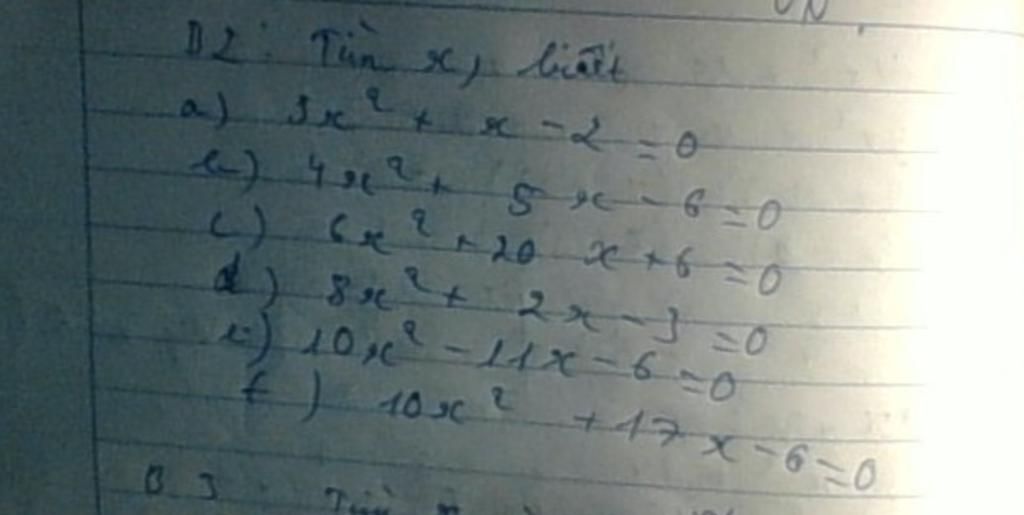 B2: Tìm x, biết
a) 3x² + x - 2 = 0
b) 4x² + 5x - 6 = 0
c) 6x² + 20x + 6 = 0
d) 8x² + 2x - 3 = 0
e) 10x² - 11x - 6 = 0
f) 10x² + 17x - 6 = 0
B3: Tìm